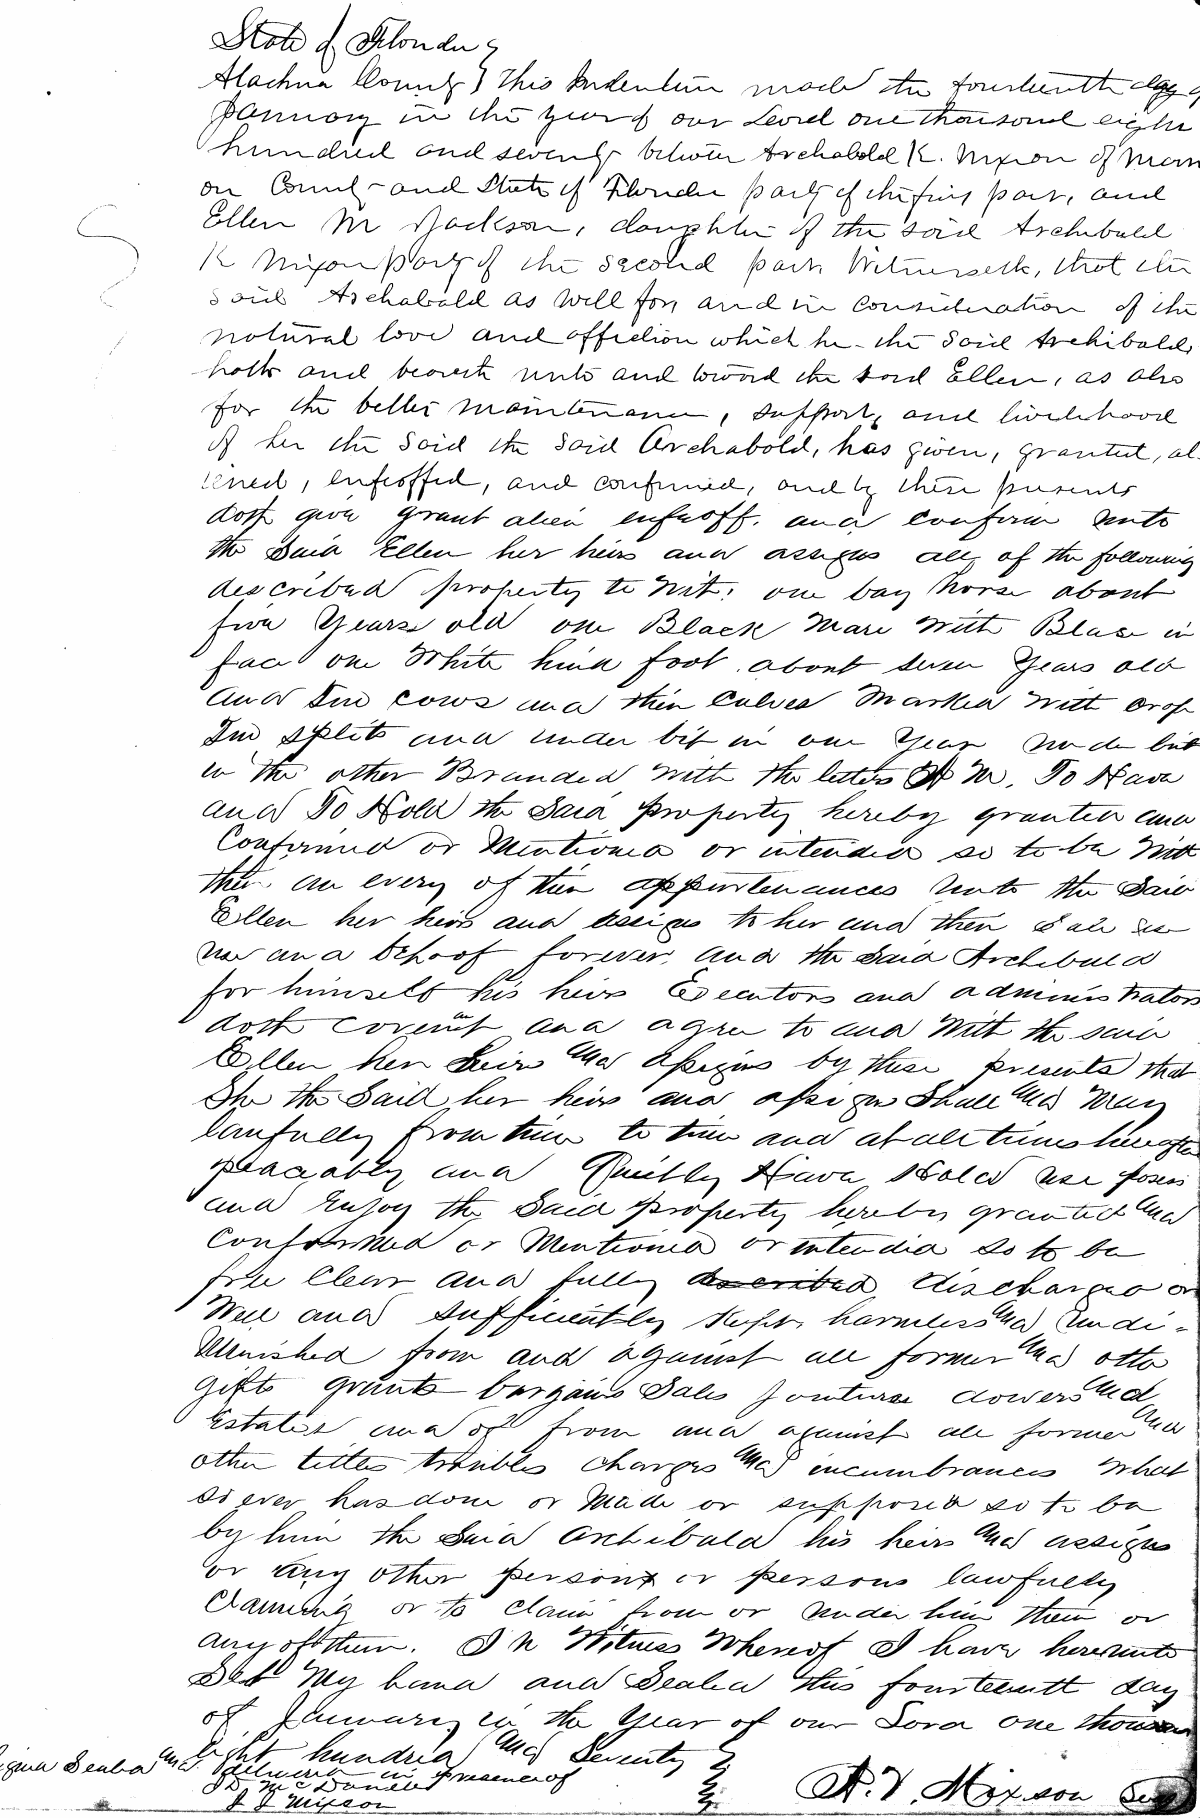 State of Florida
Alachua County } This Indenture made the fourteenth day of
January in the year of our Lord one thousand eight
hundred and seventy between Archabold K. Mixson of Mari
on County and State of Florida party of the first part, and
Ellen M Jackson, daughter of the said Archibald
K Mixson party of the second part Witnesseth, that the
said Archabald as well for, and in consideration of the
natural love and affection which he the said Archibald,
hath and beareth unto and toward the said Ellen, as also
for the better maintenance, support, and livelihood
of her the said the said Archabold, has given, granted, al-
iened, enfeoffed, and confirmed, and by these presents
doth give grant alien enfeoff. and confirm unto
the Said Ellen her heirs and assigns all of the following
described property to wit: one bay horse about
five Years old one Black Mare With Blase in
face one White hind foot about seven Years old
and Two cows and their Calves Marked With crop
Two splits and under bit in one Year under bit
in the other Branded With the letters M. To Have
and To Hold the Said property hereby granted and
Confirmed or Mentioned or intended so to be With
their an every of their appurtenances unto the Said
Ellen her heirs and assigns to her and their Sole use
use and behoof forever. and the Said Archibald
for himself his heirs Executors and administrators
doth covenant and agree to and With the said
Ellen her heirs and assigns by these presents that
She the Said her heirs and assigns Shall and May
lawfully from time to time and at all times hereafter
peaceably and Quietly Have Hold use posess
and Enjoy the Said property hereby granted and
Confirmed or Mentioned or intended so to be
free Clear and fully described discharged or
Well and sufficiently Kept harmless and undi-
Minished from and against all former and other
gifts grants bargains Sales Jointure dowers and
Estates and of from and against all former and
other titles troubles charges and incumbrances What
so ever has done or Made or supposed so to be
by him the Said Archibald his heirs and assigns
or any other person or persons lawfully
Claiming or to claim from or under him them or
any of them. In Witness Whereof I have hereunto
Set My hand and Sealed this fourteenth day
of January in the Year of our Lord one thousand
eight hundred and Seventy
Sealed and delivered in presence of
McDaniel
J J Mixson
A. K. Mixson